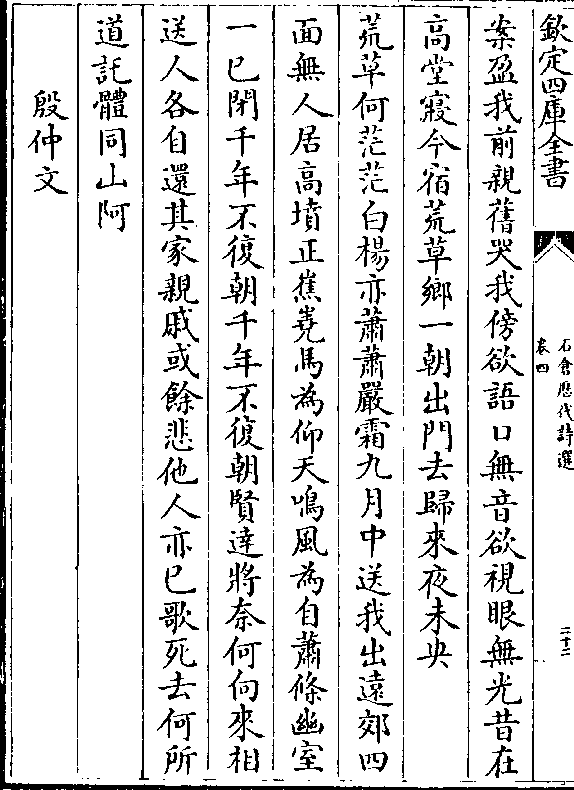 欽定四庫全書
石倉厯代詩選
卷四
二十二
案盈我前親舊哭我傍欲語口無音欲視眼無光昔在
高堂寢今宿荒草鄉一朝出門去歸來夜未央
荒草何茫茫白楊亦蕭蕭嚴霜九月中送我出遠郊四
面無人居高墳正蕉嶤馬為仰天鳴風為自蕭條幽室
一已閉千年不復朝千年不復朝賢達將奈何向來相
送人各自還其家親戚或餘悲他人亦已歌死去何所
道託體同山阿
殷仲文